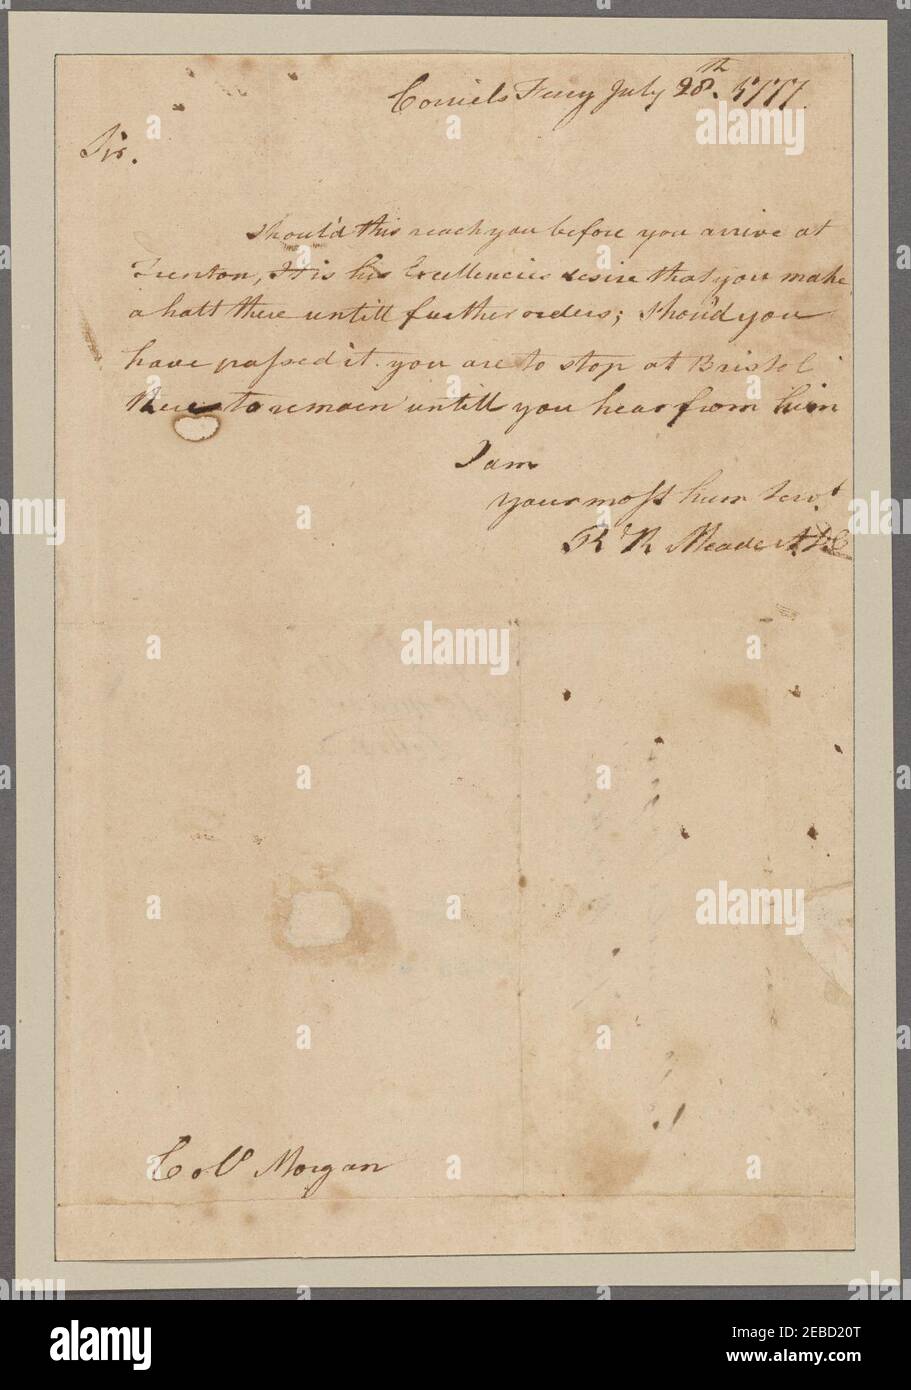 Corriels Ferry July 28th. 1777.
Sir.
Shou'd this reach you before you arrive at
Trenton, It is his Excellencies desire that you make
a halt there untill further orders; Shou'd you
have passed it you are to stop at Bristol
there to remain untill you hear from him
I am
your most hum Servt.
R K Meade ADC
Coll Morgan
alamy
Image ID: 2EBD20T
www.alamy.com